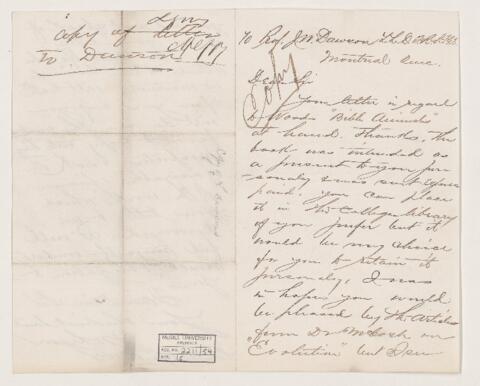 Copy of letter
to Dawson
To Prof J. W. Dawson L.L.D. F.R.S.
Montreal
Copy
Dear Sir
Your letter in regard
to Woods "Bible Animals"
at hand. Thanks. The
book was intended as
a present to you per
sonaly & was sent express
paid. You can place
it in the College Library
if you prefer but it
would be my choice
for you to retain it
personaly, I was
in hopes you would
be pleased by the Articles
from Dr McCosh on
"Evolution" but I see
McGILL UNIVERSITY
ARCHIVES
ACC. NO. 2211/54
REF.